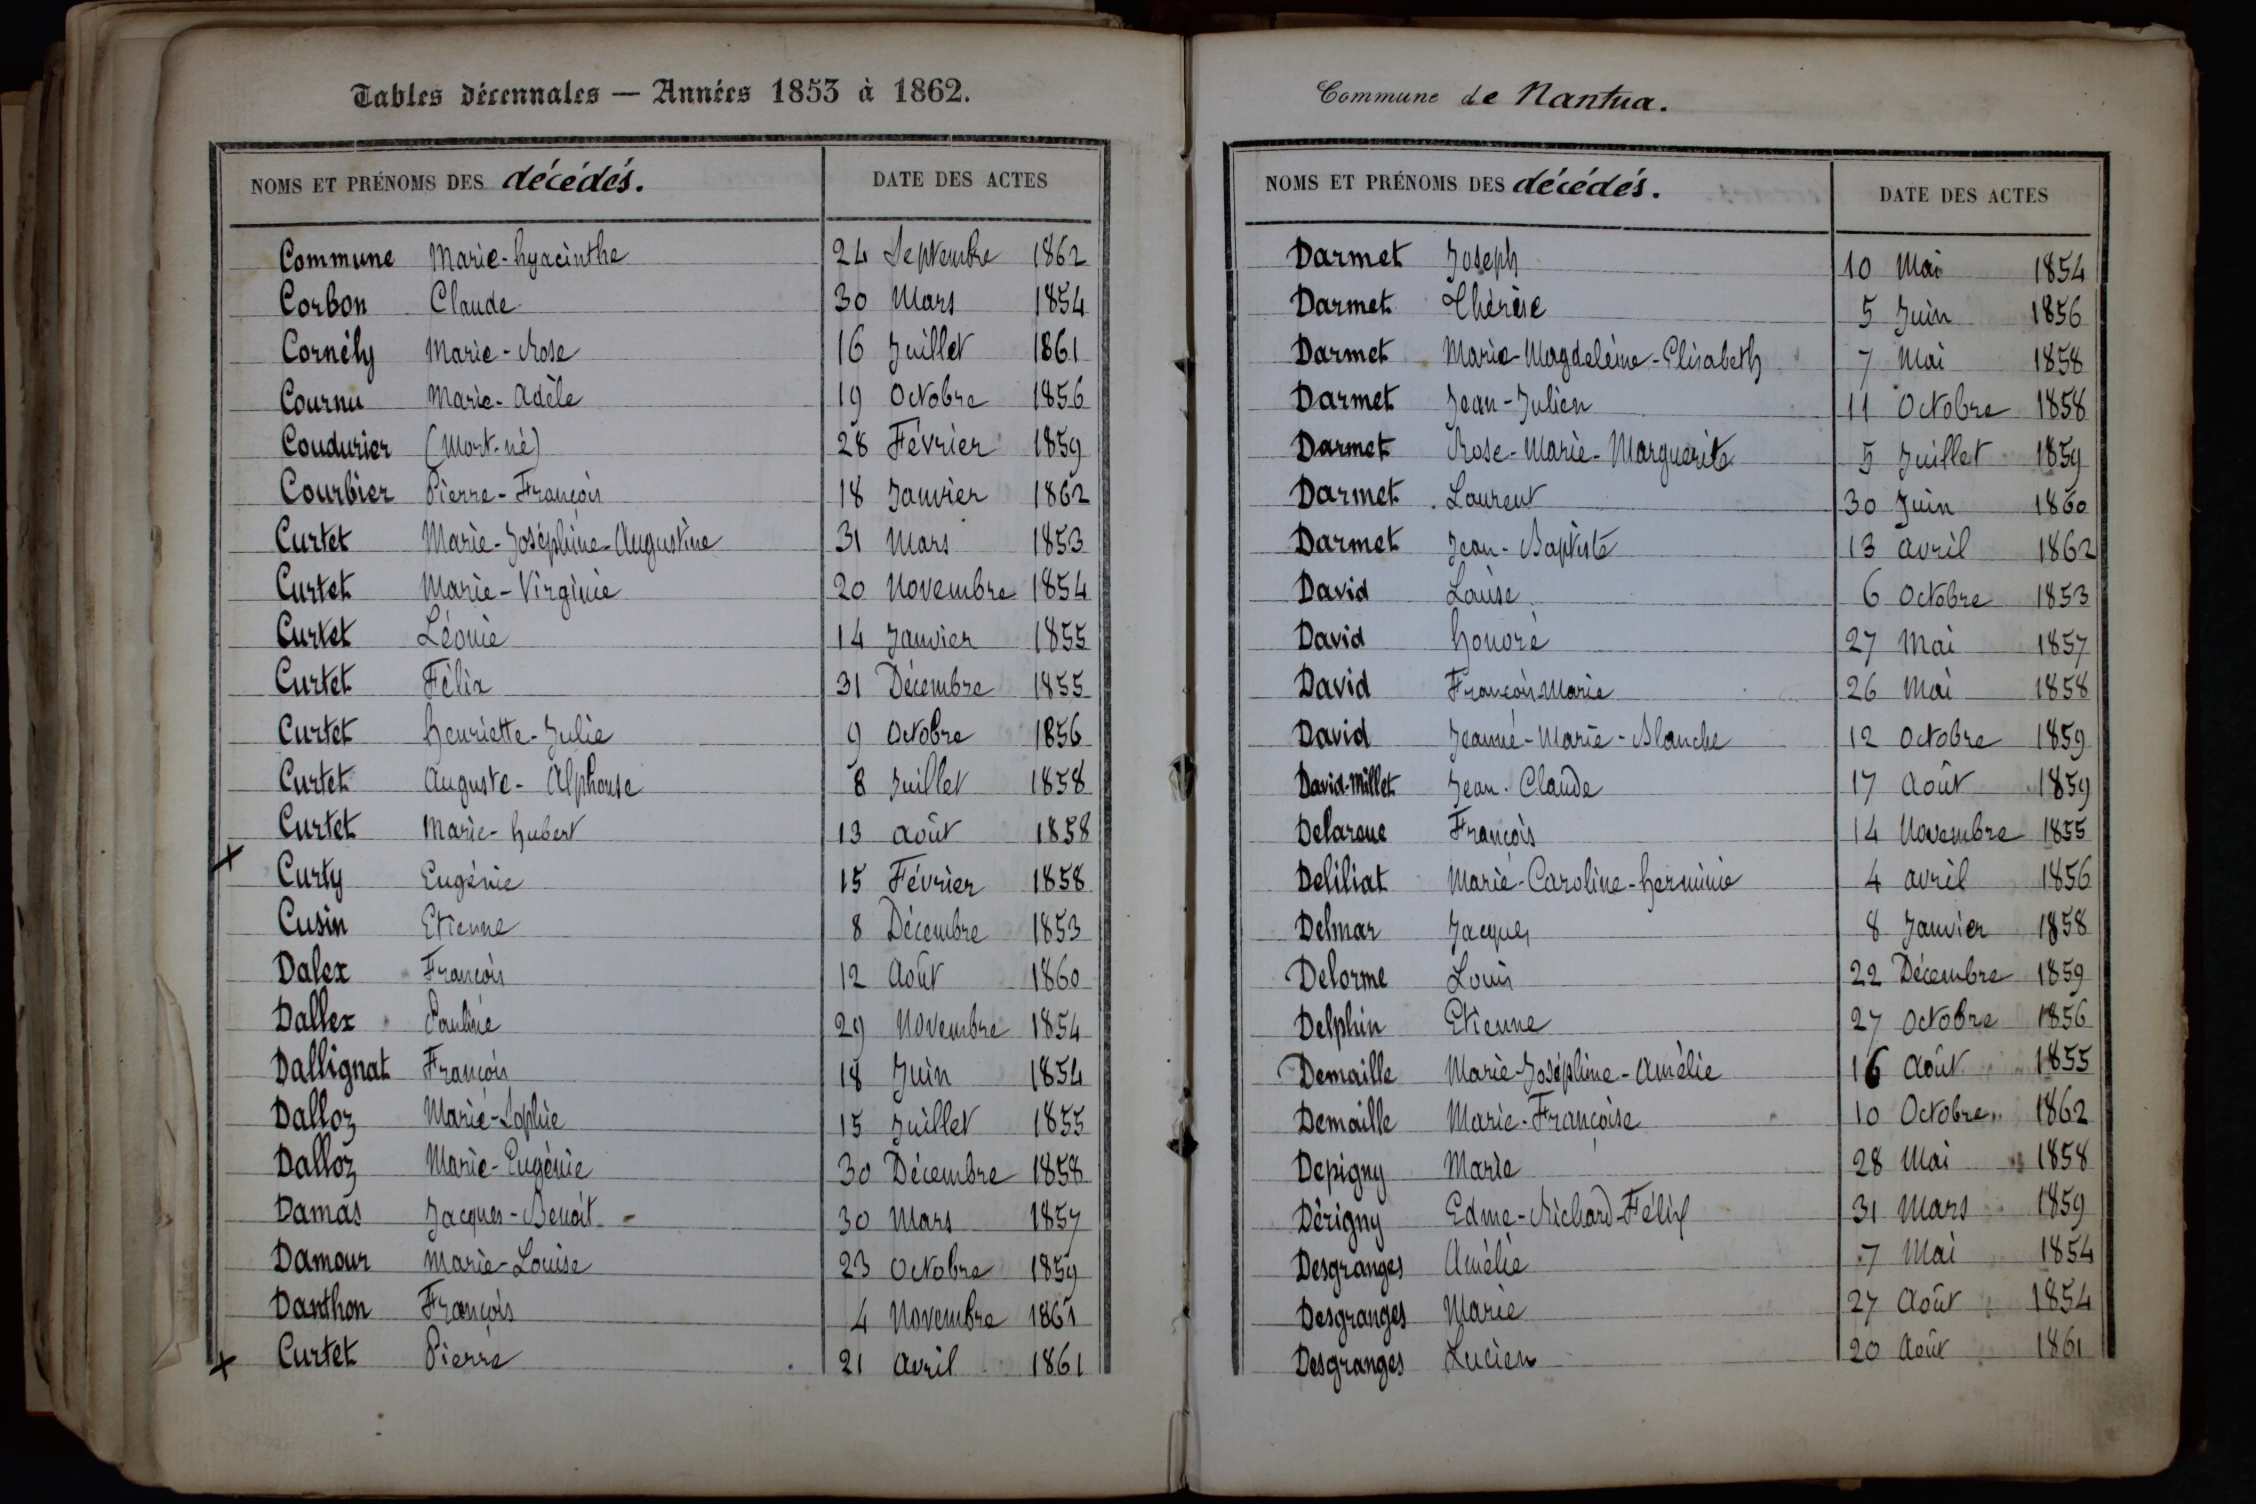 Tables décennales — Années 1853 à 1862.
NOMS ET PRÉNOMS DES décédés. DATE DES ACTES
Commune Marie-hyacinthe 24 Septembre 1862
Corbon Claude 30 Mars 1854
Cornély Marie-Rose 16 Juillet 1861
Cournu Marie-Adèle 19 Octobre 1856
Coudurier (Mort-né) 28 Février 1859
Courbier Pierre-François 18 Janvier 1862
Curtet Marie-Joséphine-Augustine 31 Mars 1853
Curtet Marie-Virginie 20 Novembre 1854
Curtet Léonie 14 Janvier 1855
Curtet Félix 31 Décembre 1855
Curtet henriette-Julie 9 Octobre 1856
Curtet Auguste-Alphonse 8 Juillet 1858
Curtet Marie-hubert 13 août 1858
x Curty Eugénie 15 Février 1858
Cusin Etienne 8 Décembre 1853
Dalex François 12 Août 1860
Dallex Pauline 29 Novembre 1854
Dallignat François 18 Juin 1854
Dalloz Marie-Sophie 15 Juillet 1855
Dalloz Marie-Eugénie 30 Décembre 1858
Damas Jacques-Benoit 30 Mars 1857
Damour Marie-Louise 23 Octobre 1859
Danthon François 4 Novembre 1861
x Curtet Pierre 21 avril 1861
Commune de Nantua.
NOMS ET PRÉNOMS DES décédés. DATE DES ACTES
Darmet Joseph 10 Mai 1854
Darmet Thérèse 5 Juin 1856
Darmet Marie-Magdeleine-Elisabeth 7 Mai 1858
Darmet Jean-Julien 11 Octobre 1858
Darmet Rose-Marie-Marguerite 5 Juillet 1859
Darmet Laurent 30 Juin 1860
Darmet Jean-Baptiste 13 avril 1862
David Louise 6 Octobre 1853
David honoré 27 Mai 1857
David François Marie 26 Mai 1858
David Jeanne-Marie-Blanche 12 Octobre 1859
David-Millet Jean-Claude 17 Août 1859
Delaroue François 14 Novembre 1855
Deliliat Marie-Caroline-herminie 4 avril 1856
Delmar Jacques 8 Janvier 1858
Delorme Louis 22 Décembre 1859
Delphin Etienne 27 Octobre 1856
Demaille Marie-Joséphine-Amélie 16 Août 1855
Demaille Marie-Françoise 10 Octobre 1862
Depigny Marie 28 Mai 1858
Dérigny Edme-Richard-Félix 31 Mars 1859
Desgranges Amélie 7 Mai 1854
Desgranges Marie 27 Août 1854
Desgranges Lucien 20 Août 1861